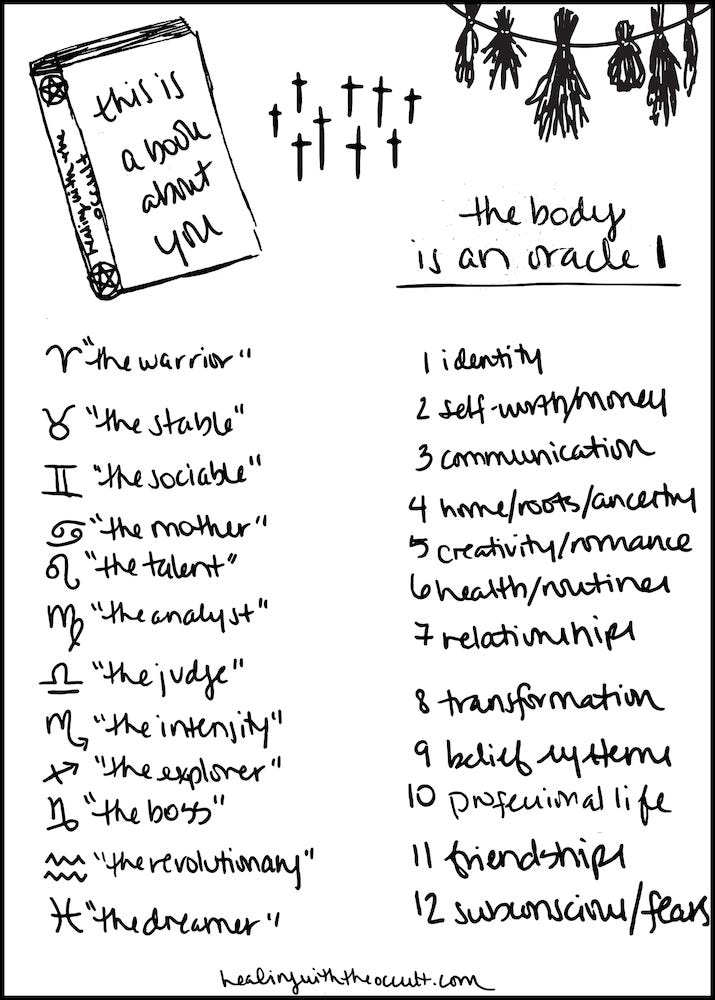 this is
a book
about
you
healing with the
occult
the body
is an oracle 1
♈ "the warrior"
♉ "the stable"
♊ "the sociable"
♋ "the mother"
♌ "the talent"
♍ "the analyst"
♎ "the judge"
♏ "the intensity"
♐ "the explorer"
♑ "the boss"
♒ "the revolutionary"
♓ "the dreamer"
1 identity
2 self-worth/money
3 communication
4 home/roots/ancestry
5 creativity/romance
6 health/routines
7 relationships
8 transformation
9 belief systems
10 professional life
11 friendships
12 subconscious/fears
healingwiththeoccult.com